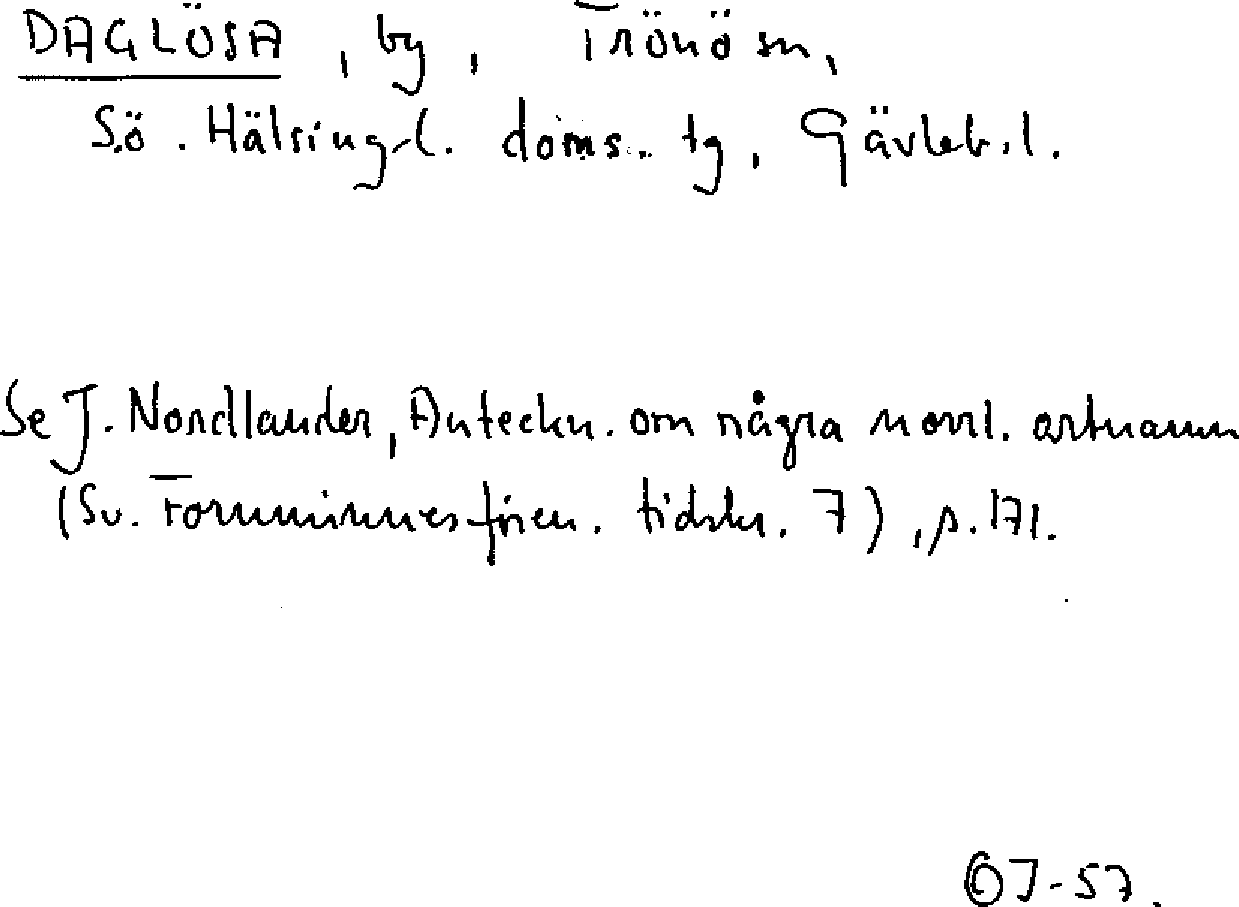 DAGLÖSA, by, Trönö sn,
Sö. Hälsingl. doms. tg, Gävleb. l.
Se J. Nordlander, Anteckn. om några norrl. ortnamn
(Sv. Fornminnesfören. tidskr. 7), p. 171.
J-57.